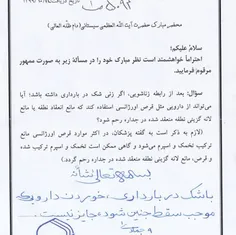 محضر مبارک حضرت آیت الله العظمی سیستانی (دام ظله العالی)
سلام علیکم؛
احتراماً خواهشمند است نظر مبارک خود را در مسألة زیر به صورت ممهور
مرقوم فرمایید.
سؤال: بعد از رابطه زناشویی، اگر زنی شک در بارداری داشته باشد؛ آیا
می‌تواند از دارویی مثل قرص اورژانسی استفاده کند که مانع انعقاد نطفه یا مانع
لانه گزینی نطفه منعقد شده در جداره رحم شود؟
(لازم به ذکر است به گفته پزشکان، در اکثر موارد قرص اورژانسی مانع
ترکیب تخمک و اسپرم می‌شود و گاهی ممکن است اسپرم ترکیب شده
و قرص، مانع لانه گزینی نطفه منعقد شده در جداره رحم شود.)
بسمه تعالی
باشک در بارداری، خوردن دارویی که
موجب سقط جنین شود، جایز نیست.